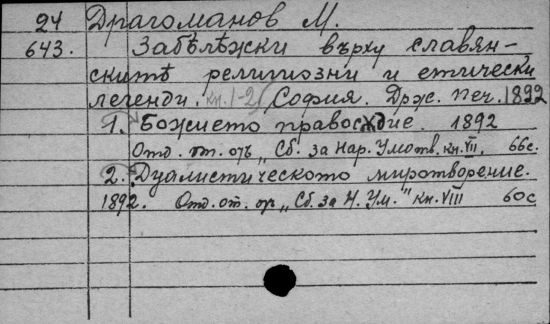 24 Драгоманов М.
643. Забѣлѣжки върху славян-
скитѣ религиозни и етически
легенди. кн. 1-2 София. Држ. печ. 1892
1. Божието правосѫдие. 1892
Отд. от. отъ „Сб. за Нар. Умотв. кн. VII. 66с.
2. Дуалистическото миротворение.
1892. Отд. от. отъ „Сб. за Н. Ум." кн. VIII 60с